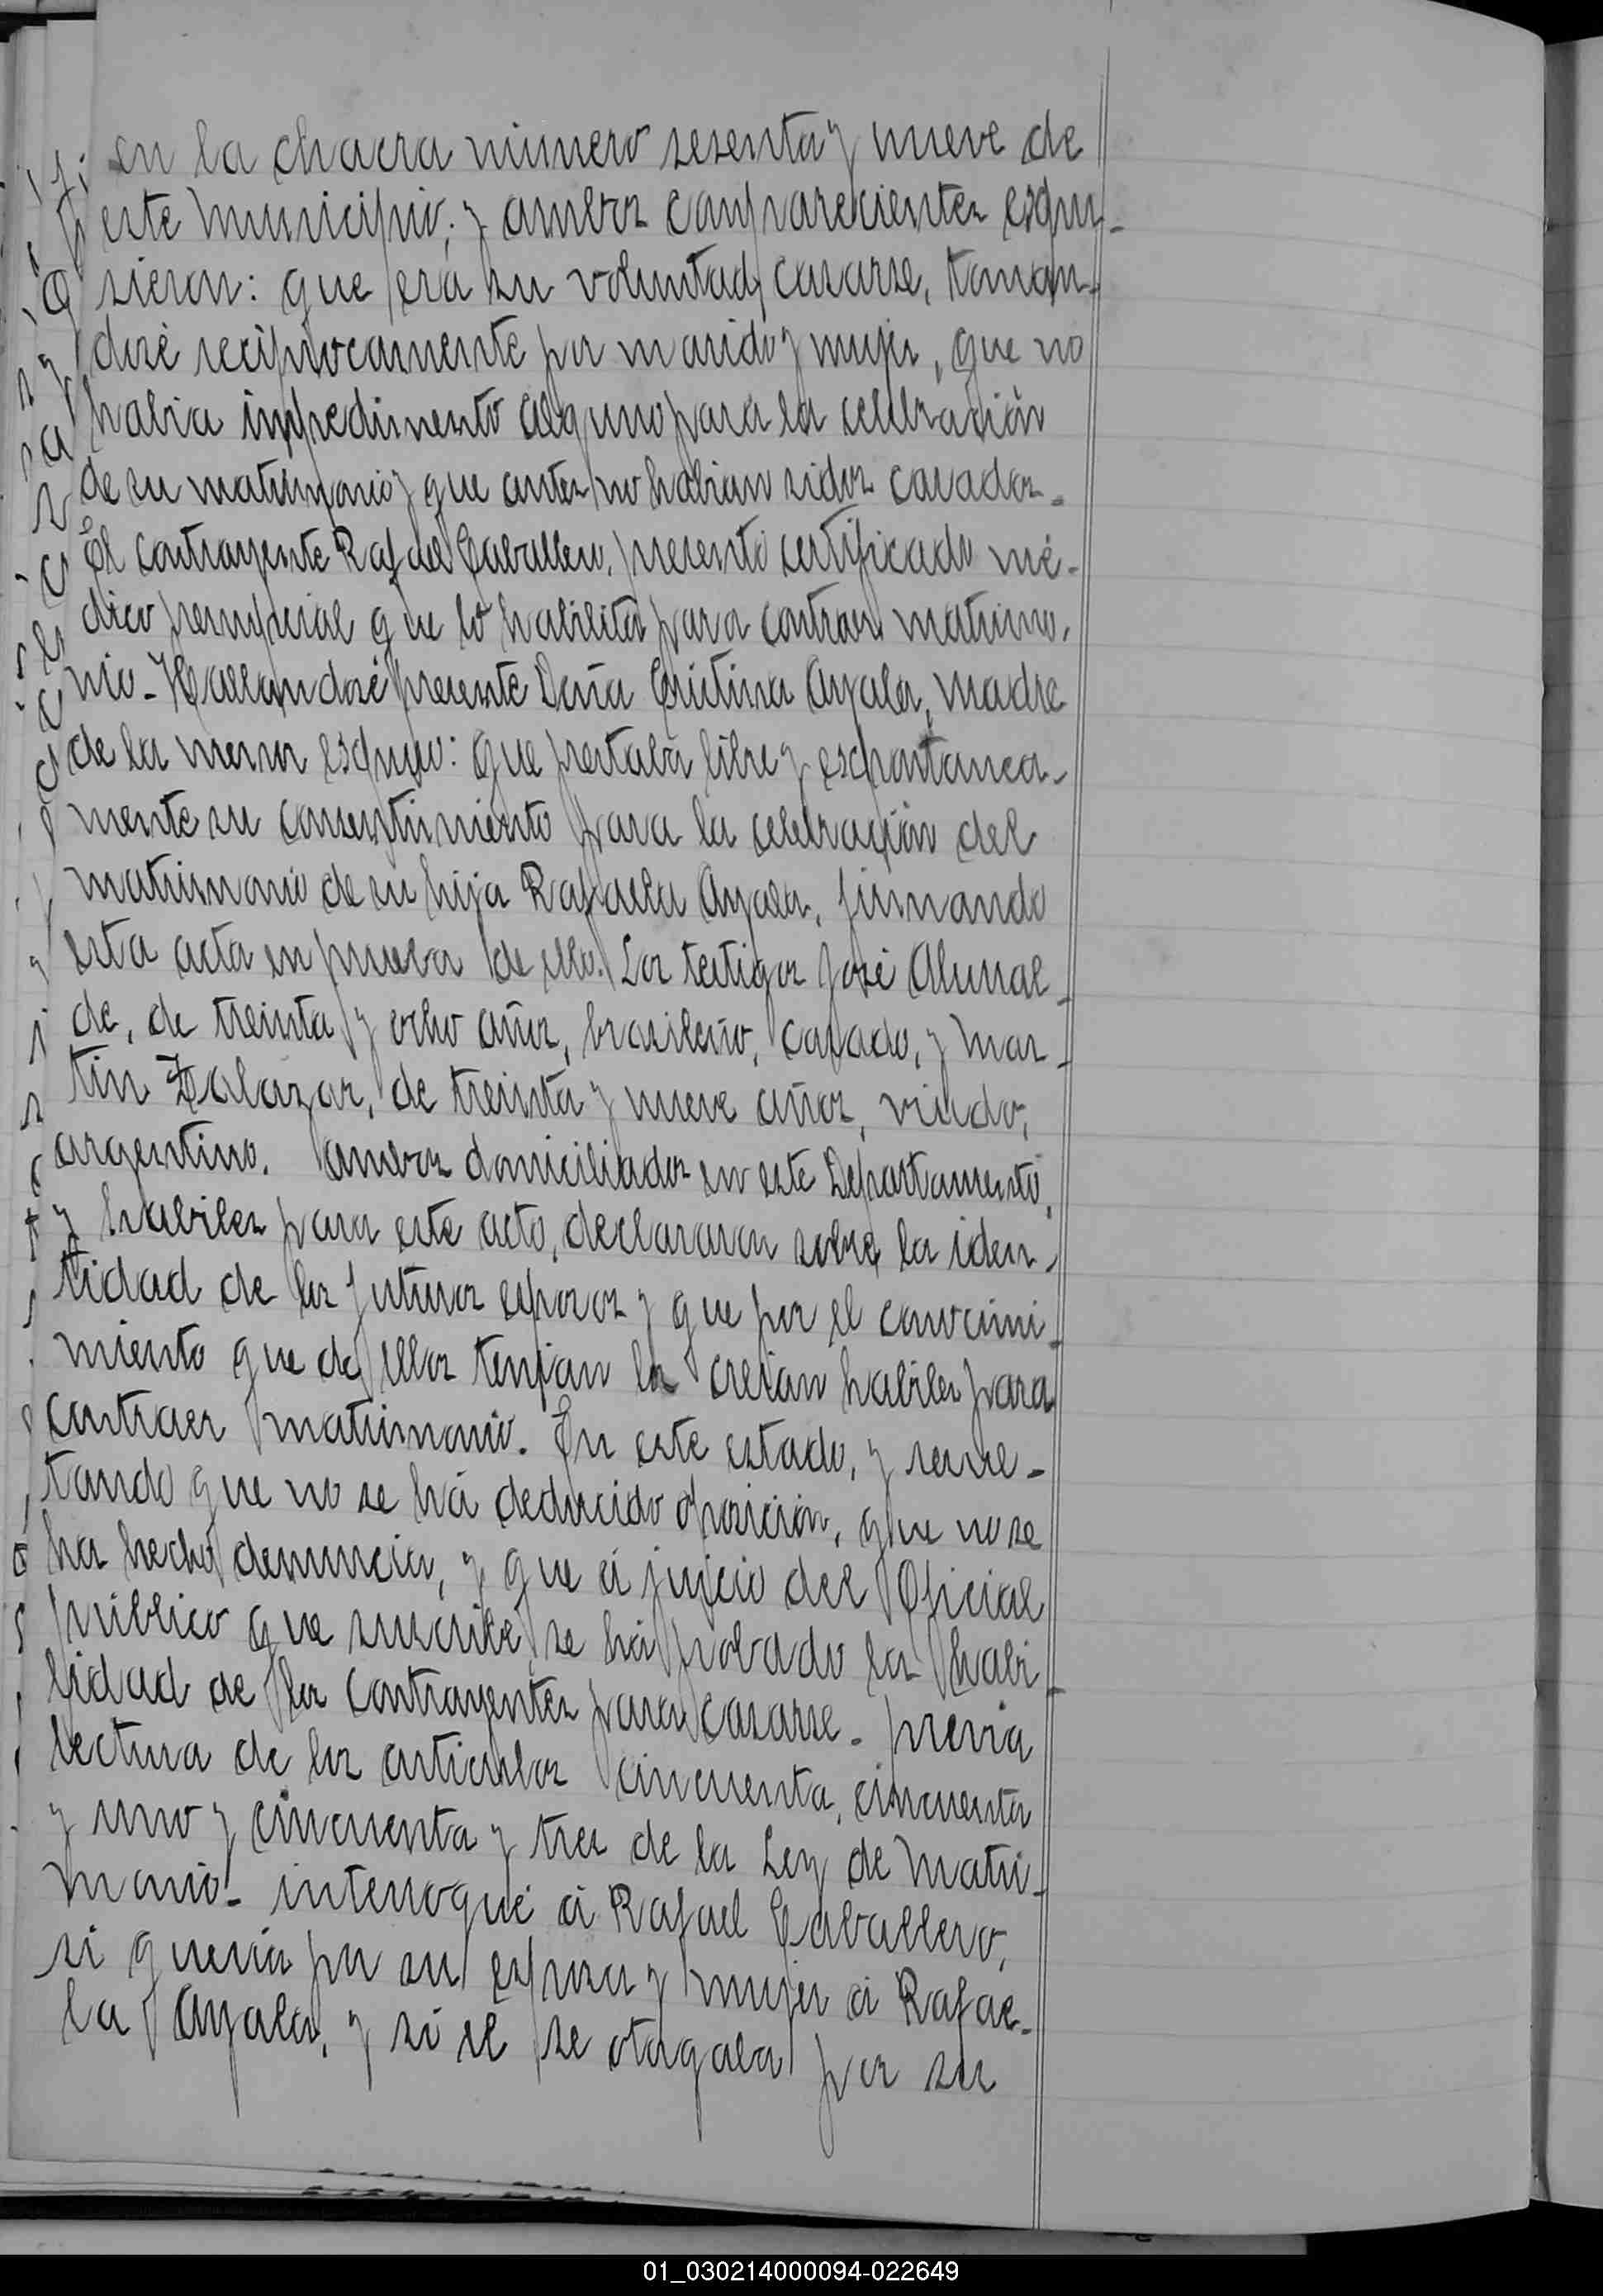 en la chacra número sesenta y nueve de
este Municipio; y ambos comparecientes espu-
sieron: que era su voluntad casarse, toman-
dosé reciprocamente por marido y mujer, que no
habia impedimento alguno para la celebración
de su matrimonio y que antes no habian sidos casados.-
El contrayente Rafael Caballero, presentó certificado mé-
dico prenupcial que lo habilita para contraer matrimo-
nio.- Hallandosé presente Doña Cristina Ayala, madre
de la menor espuso: que prestaba libre y espontanea-
mente su consentimiento para la celebración del
matrimonio de su hija Rafaela Ayala, firmando
esta acta en prueba de ello. Los testigos José
de, de treinta y ocho años, brasileño, casado, y Mar-
tin Zalazar, de treinta y nueve años, viudo,
argentino. ambos domiciliados en este Departamento,
y habiles para este acto, declararon sobre la iden-
tidad de los futuros esposos y que por el conocimi-
miento que de ellos tenian los creian habiles para
contraer matrimonio. En este estado, y resul-
tando que no se há deducido oposición, que no se
ha hecho denuncia, y que á juicio del Oficial
público que suscribe, se há probado la habi-
lidad de los contrayentes para casarse. previa
lectura de los articulos cincuenta, cincuenta
y uno y cincuenta y tres de la Ley de Matri-
monio- interrogué á Rafael Caballero,
si queria por su esposa y mujer á Rafae-
la Ayala, y si él se otorgaba por su
01_030214000094-022649